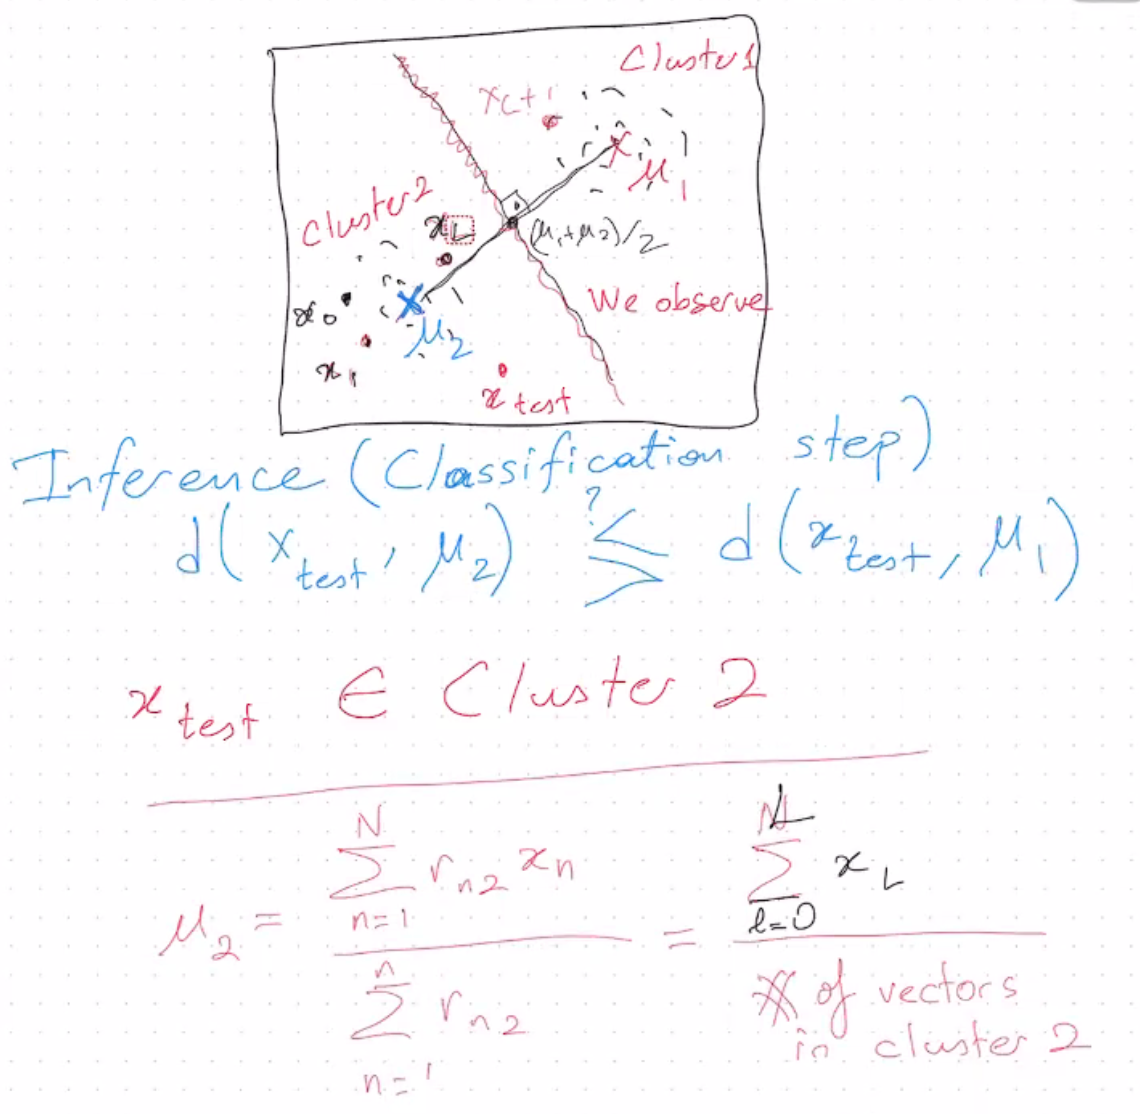 Cluster1
x_{L+1}
μ_1
Cluster2
x_L
(μ_1+μ_2)/2
x_0
μ_2
We observe
x_1
x_test
Inference (Classification step)
?
d(x_test, μ_2) ≶ d(x_test, μ_1)
x_test ∈ Cluster 2
μ_2 = \frac{\sum_{n=1}^{N} r_{n2} x_n}{\sum_{n=1}^{n} r_{n2}} = \frac{\sum_{l=0}^{L} x_L}{\text{# of vectors in cluster 2}}